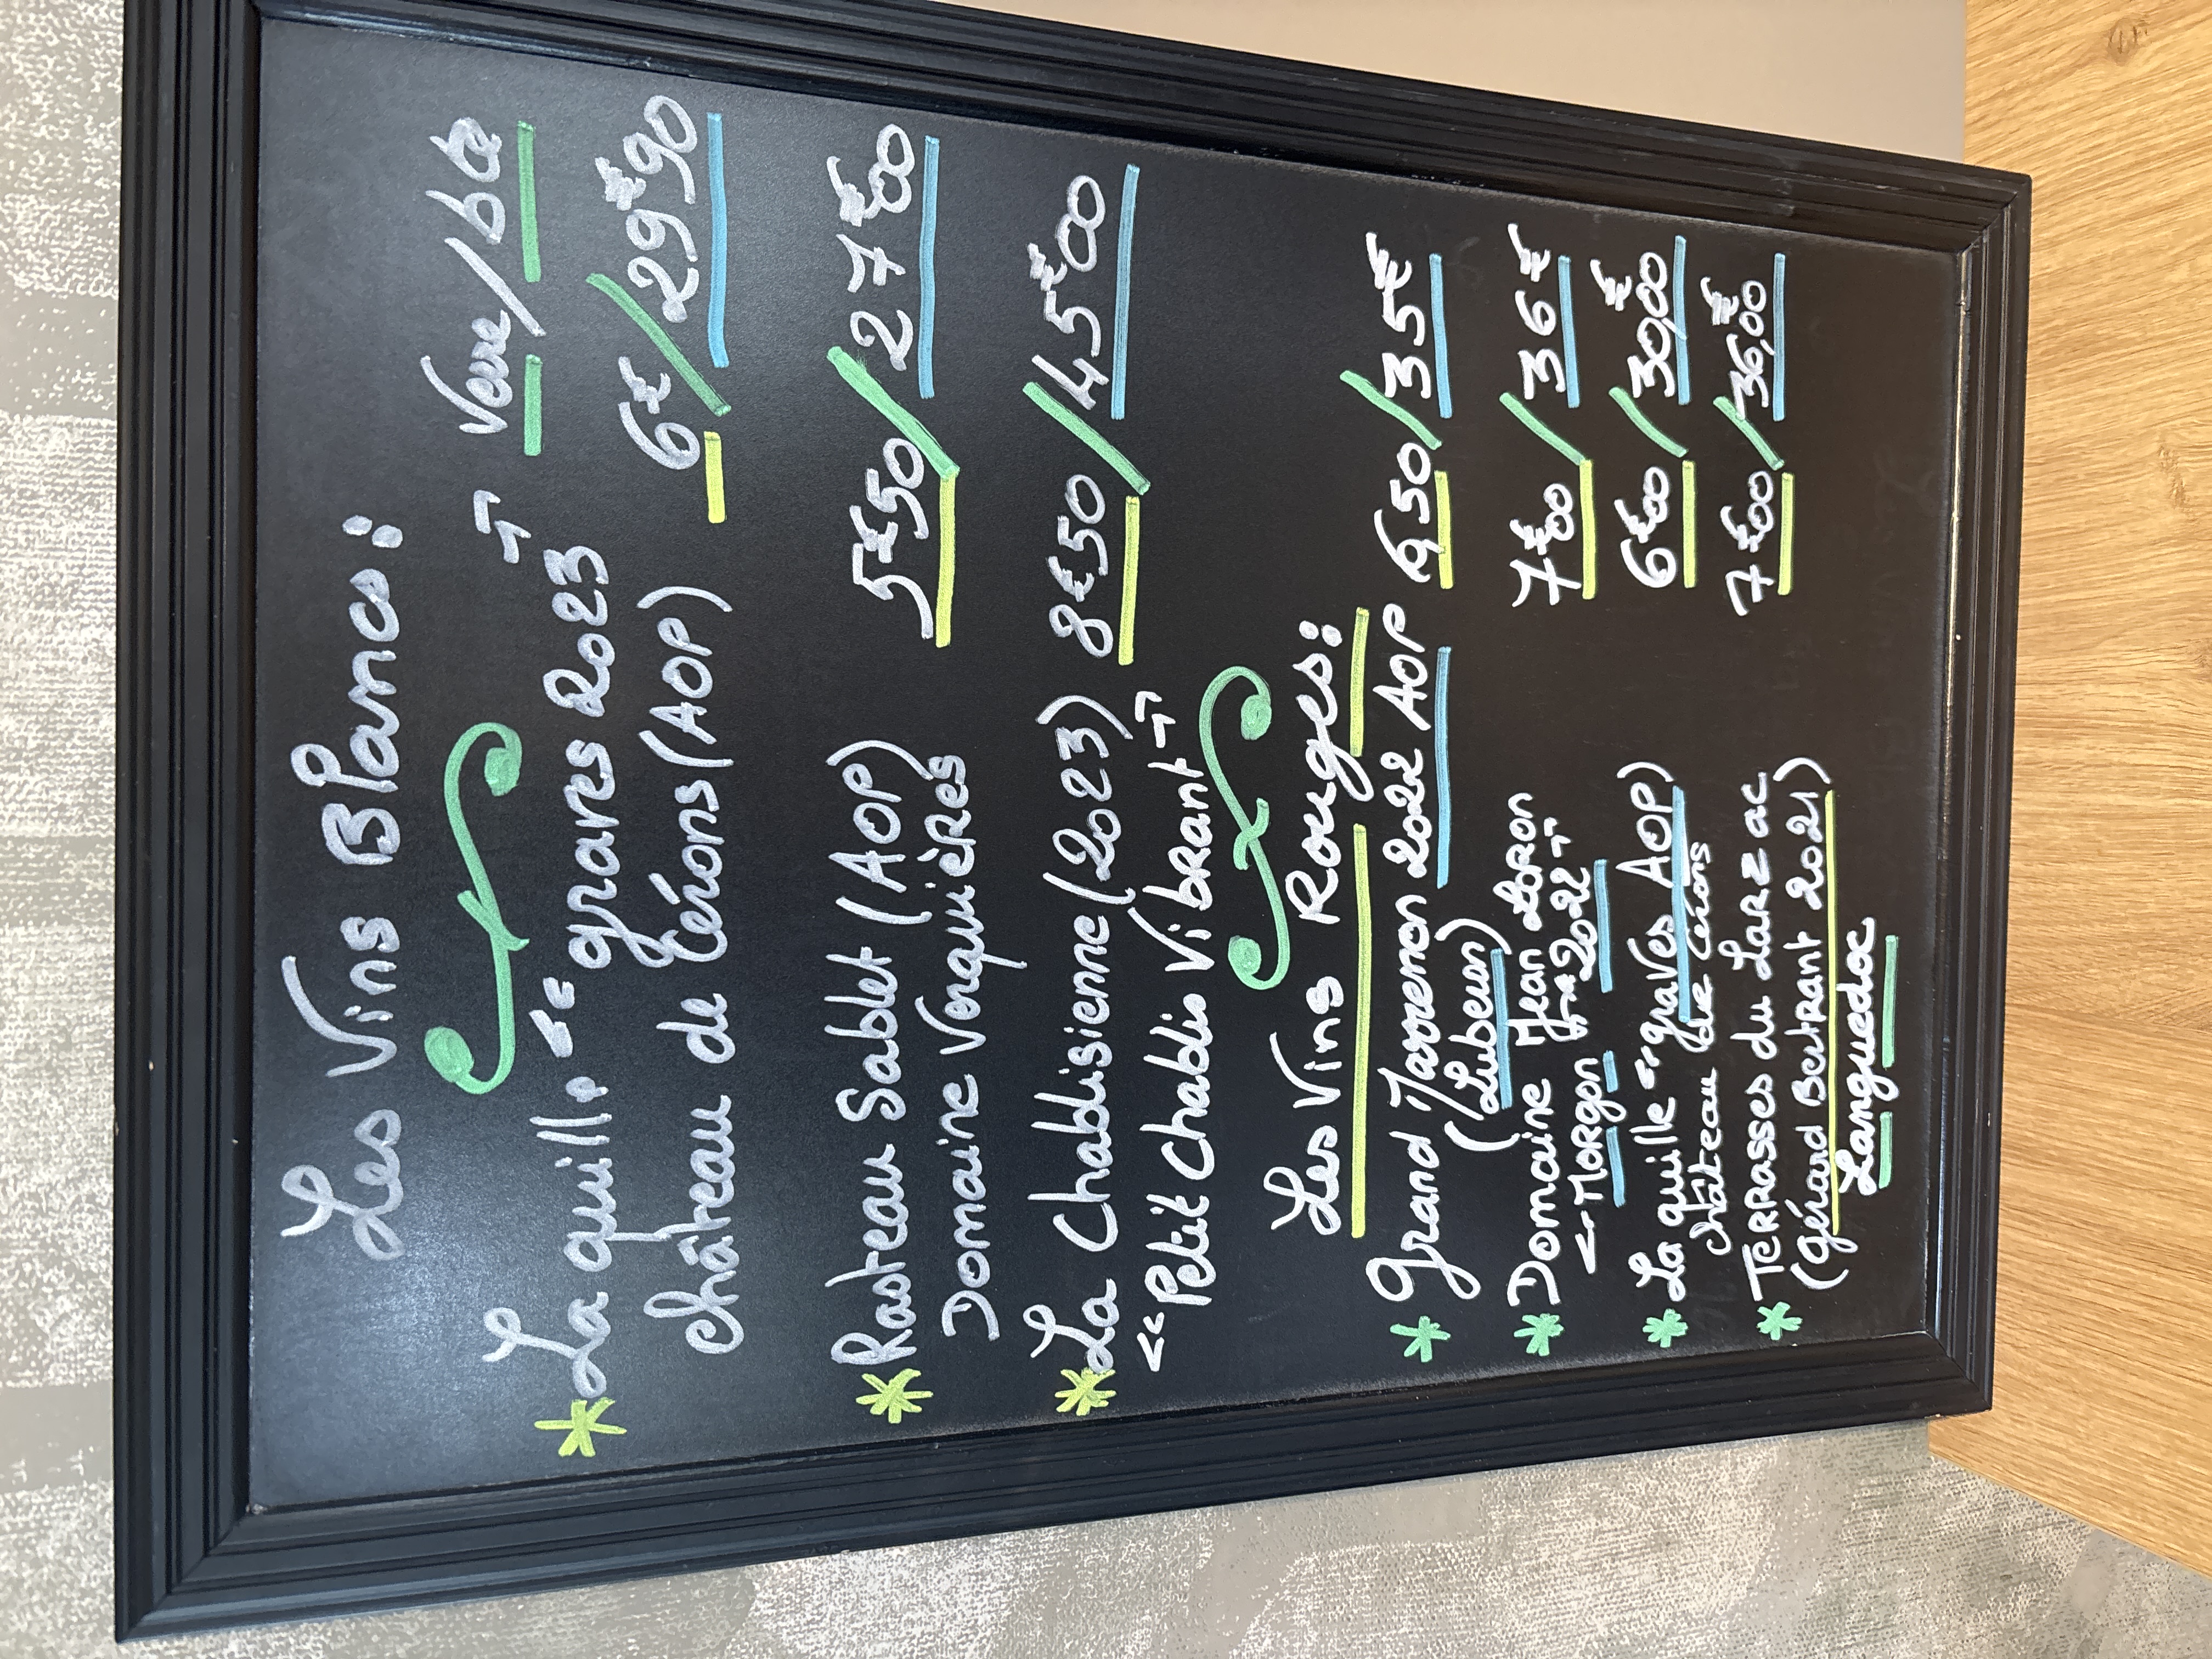 Les Vins Blancs:
" Verre/btle
* La quille " graves 2023 6€/29€90
château de Cérons (AOP)
* Rasteau Sablet (AOP) 5€50/27€00
Domaine Verquières
* La Chablisienne (2023) 8€50/45€00
"Petit Chablis Vibrant"
Les Vins Rouges:
* Grand Marrenon 2022 AOP 6,50/35€
(Luberon)
* Domaine Jean Loron 7€00/36€
"Morgon 2022"
* La quille "graves AOP) 6€00/30,00€
château de Cérons
* Terrasses du Larzac 7€00/36,00€
(Gérard Bertrant 2021)
Languedoc